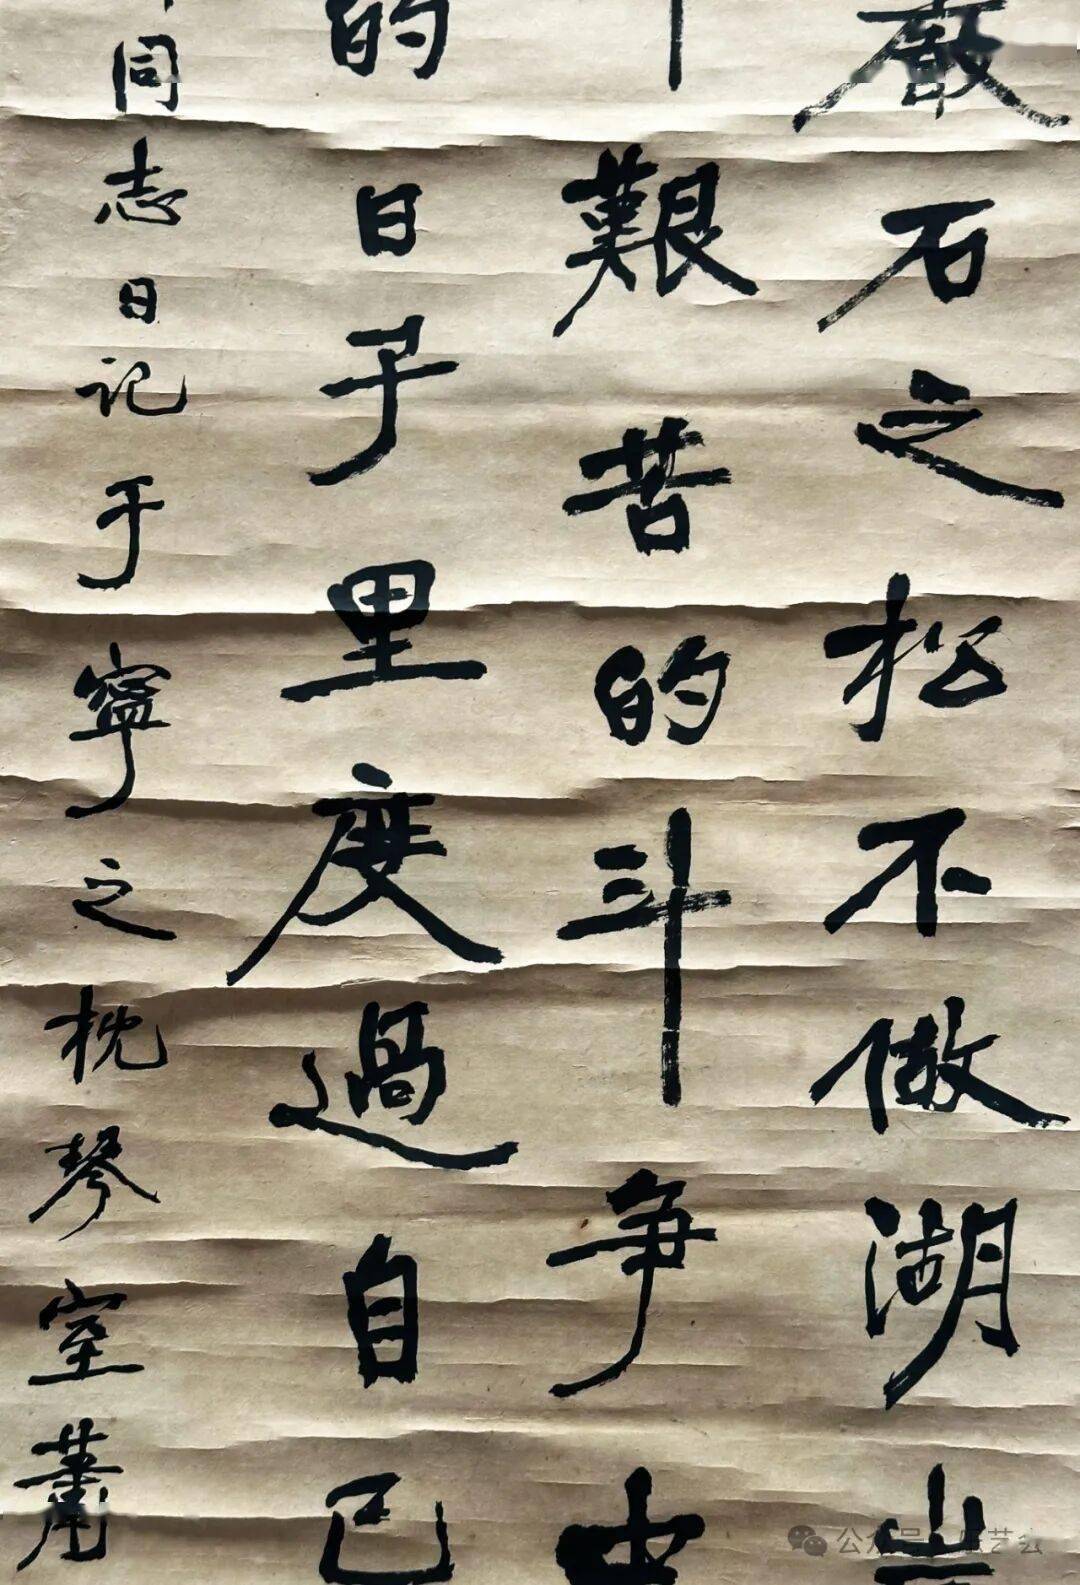 石之松不做湖
艱苦的斗争中
的日子里度過自己
同志日记于寧之枕琴室蕭
公众号